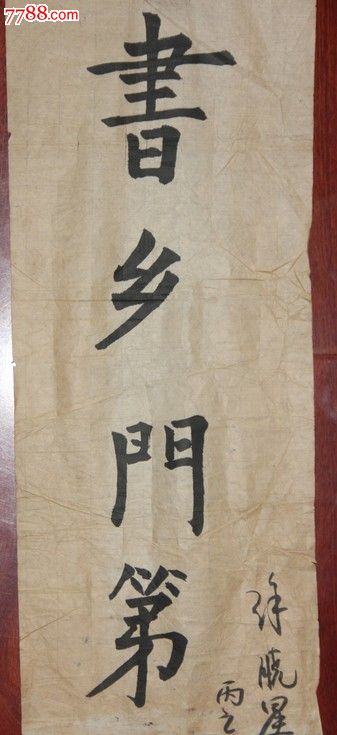 7788.com
書乡門第
徐晓星
丙